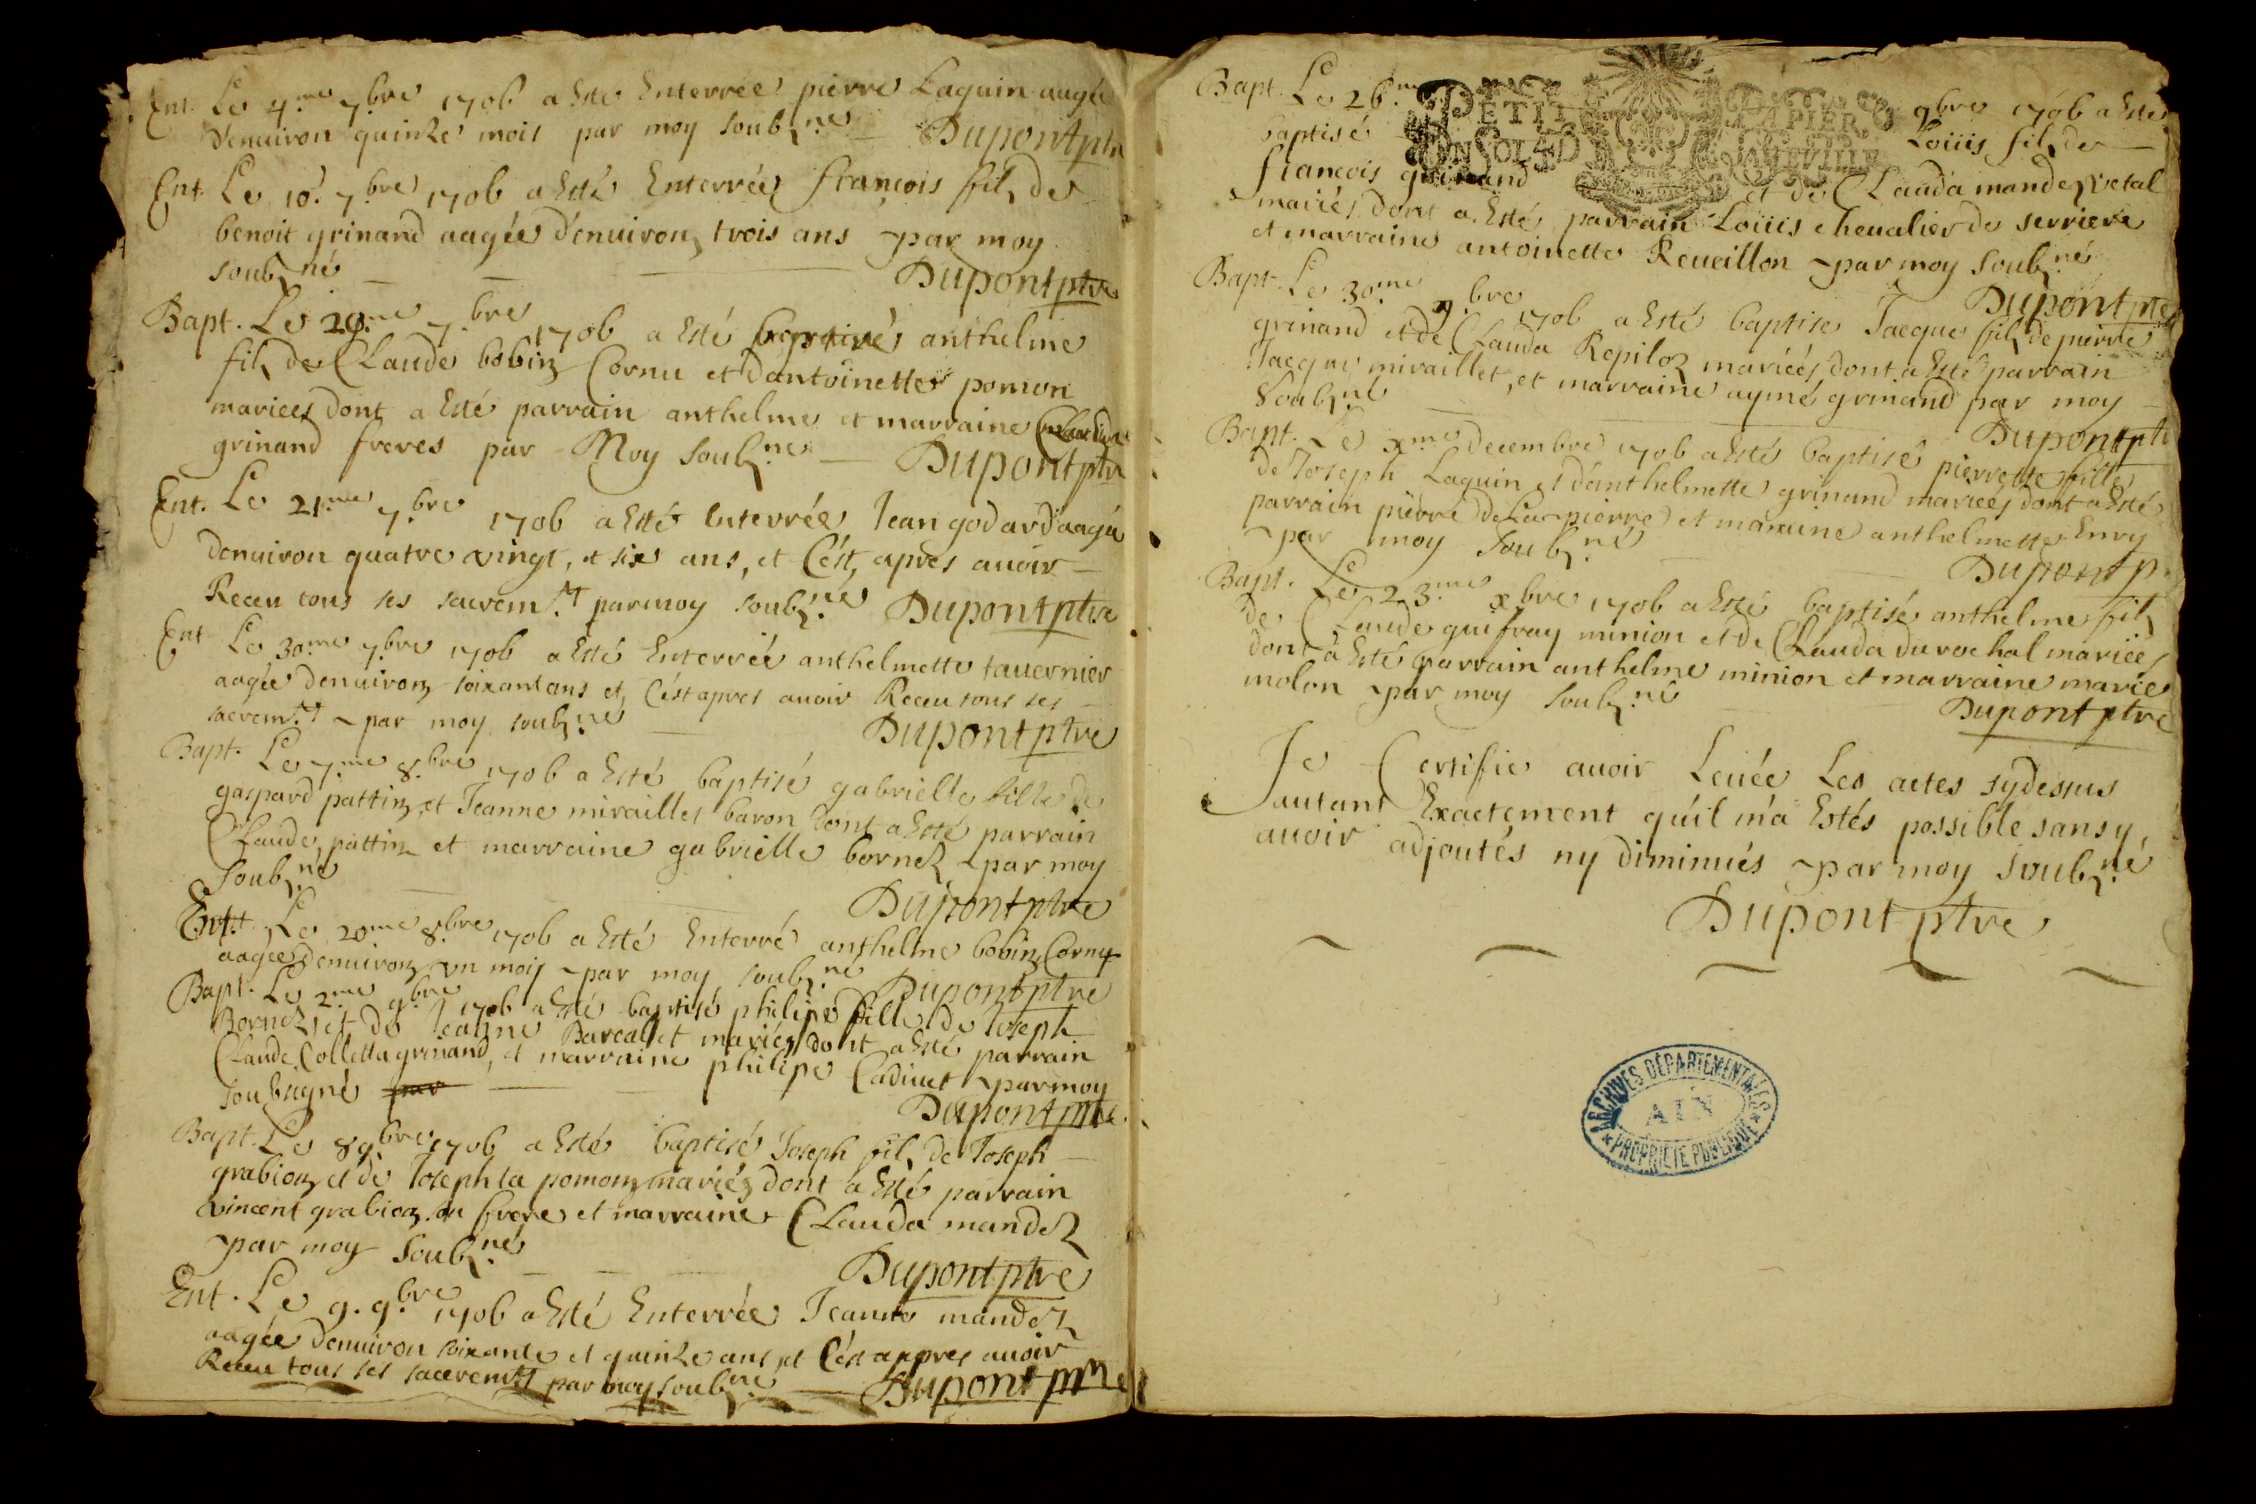 Ent. Le 4.me 7.bre 1706 a Esté Enterrée pierre Laguin aagée
d'enuiron quinze mois par moy soubz.né Dupont ptre
Ent. Le 10.e 7.bre 1706 a Esté Enterrée françois filz de
benoit grinand aagée d'enuiron trois ans par moy
soubz.né Dupont ptre
Bapt. Le 20.me 7.bre 1706 a Esté baptisé anthelme
filz de Claude bobin Cornu et d'antoinette pomon
mariees dont a Esté parrain anthelme et marraine Claudine
grinand freres par Moy soubz.né Dupont ptre
Ent. Le 21.me 7.bre 1706 a Esté Enterrée Jean godard aagée
denuiron quatre vingt, et six ans, et C'ést, apres auoir
Receu tous ses sacrem.ts par moy soubz.né Dupont ptre
Ent Le 30.me 7.bre 1706 a Esté Enterréé anthelmette tauernier
aagée denuiron soixant ans et C'ést apres auoir Receu tous ses
sacrem.ts par moy soubz.né Dupont ptre
Bapt. Le 7.me 8.bre 1706 a Esté baptisé gabriellé fille de
gaspard pattin et Jeanne miraillet baron dont a Esté parrain
Claude pattin et marraine gabrielle bornez par moy
soubz.né Dupont ptre
Ent. Le 20.me 8.bre 1706 a Esté Enterré anthelme bobin Cornu
aagée denuiron vn mois par moy soubz.né Dupont ptre
Bapt. Le 2.me 9.bre 1706 a Esté baptisé philipe fille de Joseph
Bornez et de Jeanne Barcallet mariéz dont a Esté parrain
Claude Colletta grinand, et marraine philipe Cadinet par moy
soubsigné par Dupont ptre
Bapt. Le 8 9.bre 1706 a Esté baptisé Joseph filz de Joseph
grabion et de Josephta pomon mariéz dont a Esté parrain
vincent grabion son frere et marraine Clauda mandez
par moy Soubz.né Dupont ptre
Ent. Le 9. 9.bre 1706 a Esté Enterrée Jeanne mandez
aagée denuiron soixante et quinze ans et C'ést appres auoir
Receu tous ses sacrem.ts par moy soubz.né Dupont ptre
PETIT PAPIER
Bapt. Le 26.me 9.bre 1706 a Esté
baptisé Loüis filz de
françois grinand et de Clauda mandez vetal
mariés dont a Esté parrain Loüis cheualier de serriere
et marraine antoinette Reueillon par moy soubz.né
Dupont ptre
Bapt. Le 30.me 9.bre 1706 a Esté baptise Jacque filz de pierre
grinand et de Clauda Repiloz mariéés dont a Esté parrain
Jacque miraillet, et marraine aymé grinand par moy
Soubz.né Dupont ptre
Bapt. Le x.me decembre 1706 a Esté baptisé pierrette fille
de Joseph Laguin et d'anthelmette grinand mariées dont a Esté
parrain pierre de La pierre et maraine anthelmette Envy
par moy soubz.né Dupont p.
Bapt. Le 23.me x.bre 1706 a Esté baptisé anthelme filz
de Claude guifray minion et de Clauda durochal mariéé
dont a Esté parrain anthelme minion et marraine marie
molon par moy soubz.né Dupont ptre
Je Certifie auoir Leuée Les actes sydessus
dautant Exactement qu'il m'a Estés possible sans y
auoir adjoutés ny diminués par moy soubz.né
Dupont ptre
ARCHIVES DÉPARTEMENTALES
AIN
PROPRIÉTÉ PUBLIQUE